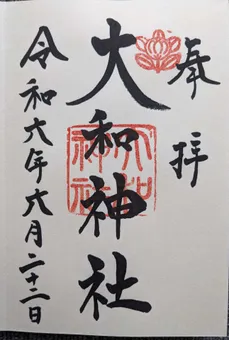 奉拝
大和神社
令和六年六月二十二日